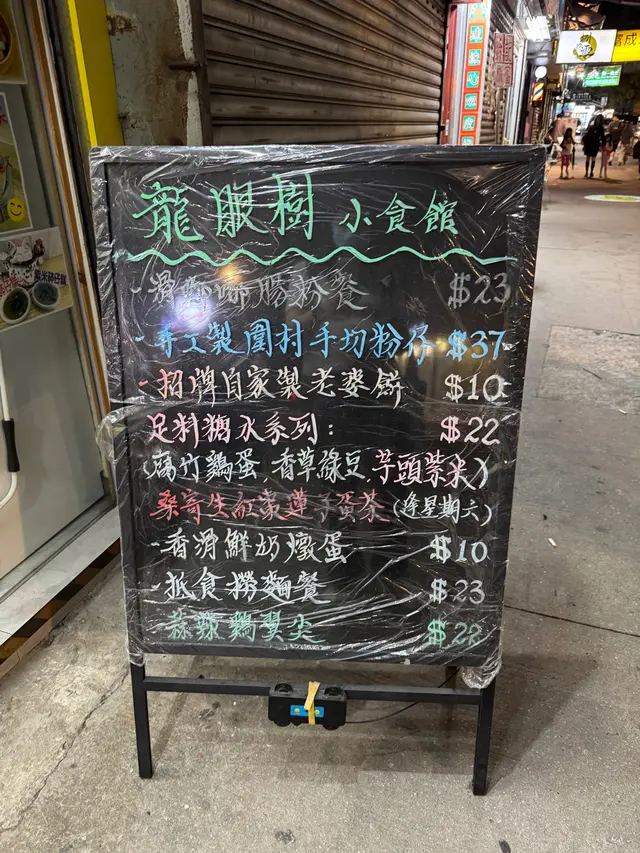 龍眼樹 小食館
-滑嘟嘟腸粉餐 $23
-手工製圍村手切粉仔 $37
-招牌自家製老婆餅 $10
足料糖水系列: $22
(腐竹鷄蛋,香草綠豆,芋頭紫米)
桑寄生紅棗蓮子蛋茶(逢星期六)
-香滑鮮奶燉蛋 $10
-抵食撈麵餐 $23
蒜辣鷄翼尖 $28